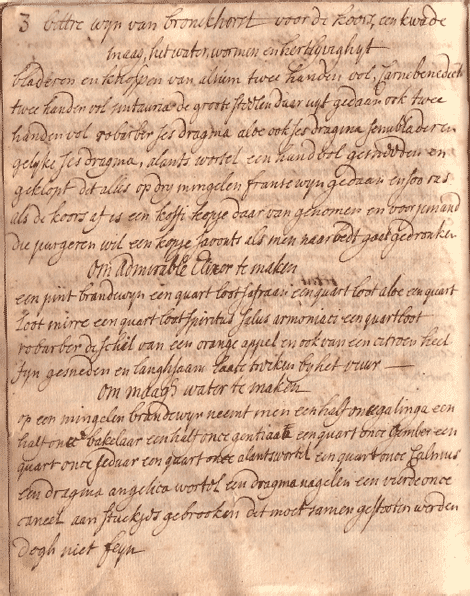 3 bittre wyn van bronckhorst voor de koors, een kwade
maag, het water, wormen en hertlyvighyt
bladeren en knoppen van alsum twee handen vol, Carnebenedicti
twee handen vol sintaurie de groote steelen daer uyt gedaan ook twee
handen vol robarber ses dragma aloe ook ses dragma senubladeren
gelyke ses dragma, alants wortel een hand vol gesneden en
geklopt dit alles op dry mingelen franse wyn gedaan en soo ras
als de koors af is een koffi kopje daar van genomen en voor jemand
die purgeren wil een kopje savonts als men naer bedt gaet gedronken
Om Admirable Elixer te maken
een pint brandewyn een quart loot safraan een quart loot aloe een quart
loot mirre een quart loot spiritus salus armoniaci een quart loot
robarber de schil van een orange appel en ook van een citroen heel
fyn gesneden en langhsaam laate trecken by het vuur
Om maagh water te maken
op een mingelen brandewyn neemt men een half once galinga een
half once bakelaer een half once gentiaan een quart once Cember een
quart once seduar een quart once alantswortel een quart once Calmus
een dragma angelica wortel een dragma nagelen een vierde once
caneel aan stuckjes gebrooken dit moet samen gestooten werden
dogh niet feyn